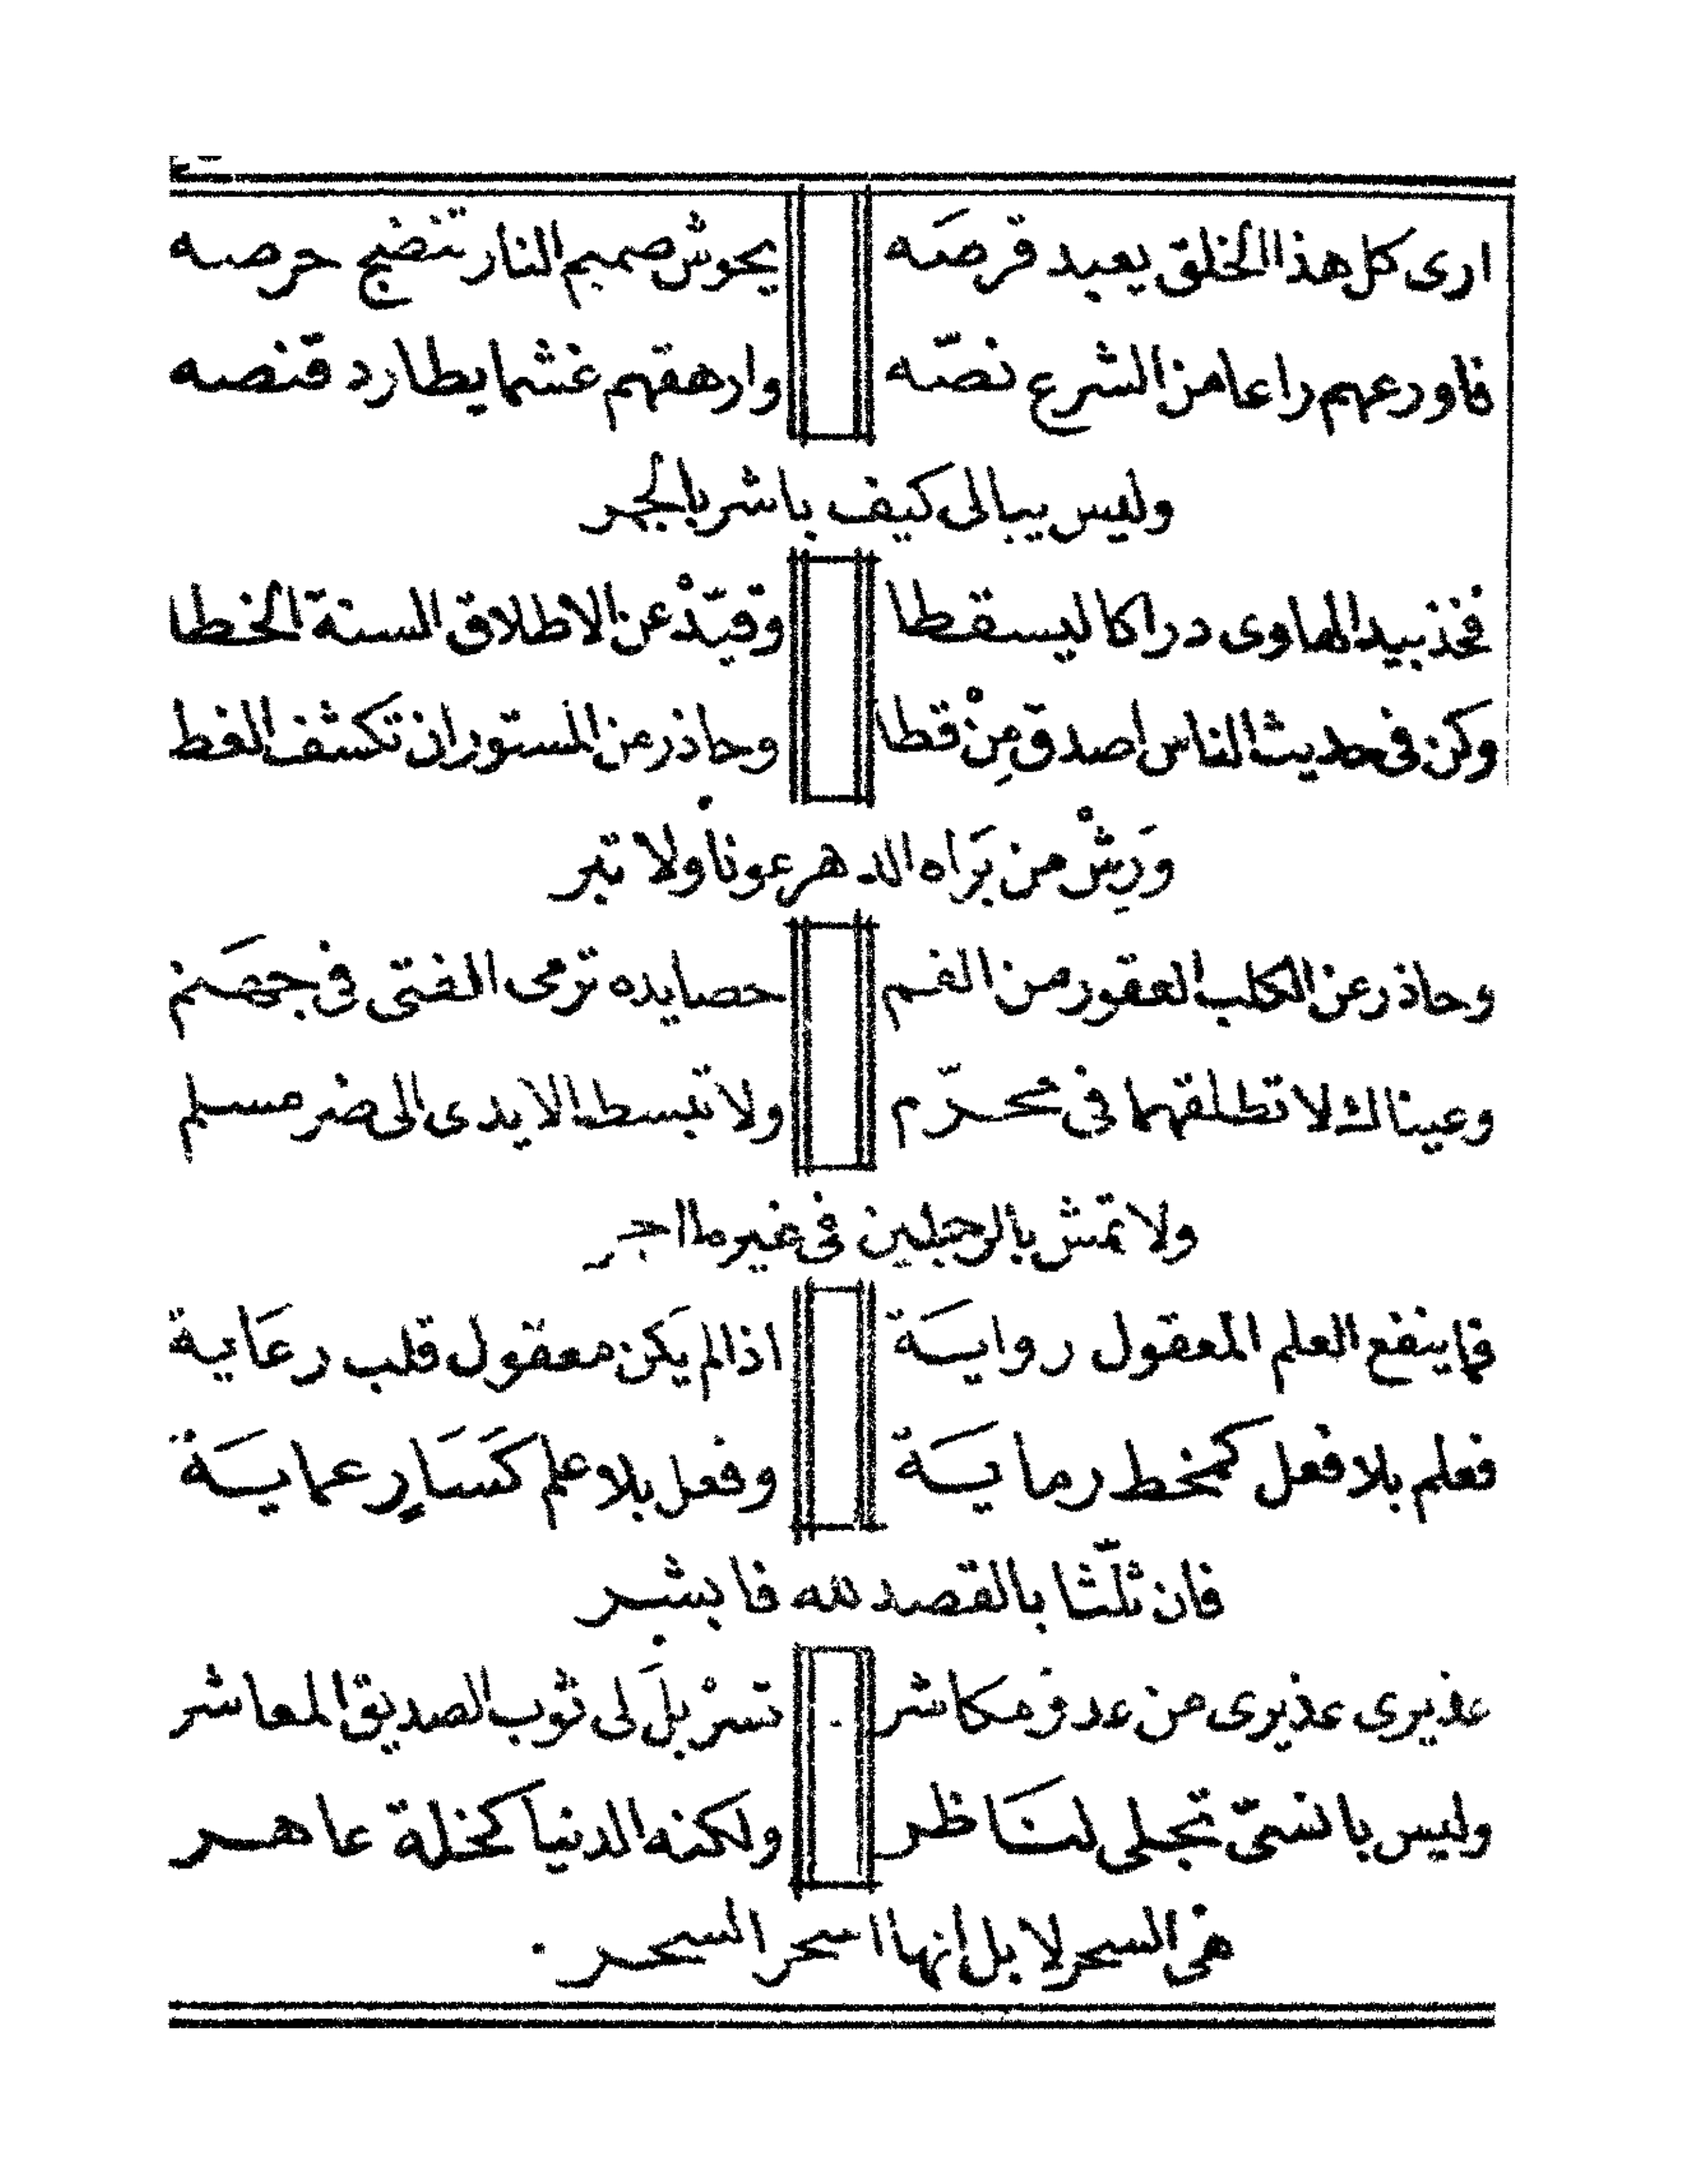 ارى كل هذا الخلق يعبد قرصَه يحوش صميم النار تنضج حرصه
فاورعهم راعا من الشرع نصّه وارهقهم غشما يطارد قنصه
وليس يبالى كيف باشر بالجهر
فخذ بيد الهاوى دراكا ليسقطا وقيّدْ عن الاطلاق السنة الخطا
وكن فى حديث الناس اصدق مِنْ قطا وحاذر عن المستور ان تكشف الغطا
وَرِشْ من بَراه الدهر عونا ولا تبر
وحاذر عن الكلب العقور من الفم حصايده ترمى الفتى فى جهَنم
وعيناك لا تطلقهما فى محرّم ولا تبسط الايدى الى ضر مسلم
ولا تمش بالرجلين فى غير ما اجر
فما ينفع العلم المعقول روايَة اذا لم يَكن معقول قلب رعَاية
فعلم بلا فعل كمخط رمايَة وفعل بلا علم كَسَارٍ عمايَة
فان ثلّثا بالقصد لله فابشر
عذيرى عذيرى من عدو مكاشر تسرْبلَ لى ثوب الصديق المعاشر
وليس بانسىّ تجلى لنَاظر ولكنه الدنيا كخلة عاهر
هى السحر لا بل إنها اسحر السحر